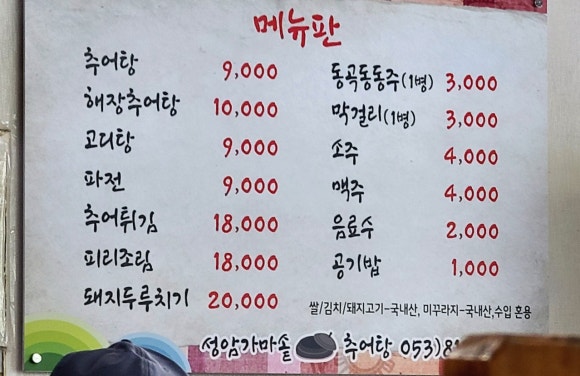 메뉴판
추어탕 9,000
해장추어탕 10,000
고디탕 9,000
파전 9,000
추어튀김 18,000
피리조림 18,000
돼지두루치기 20,000
동곡동동주(1병) 3,000
막걸리(1병) 3,000
소주 4,000
맥주 4,000
음료수 2,000
공기밥 1,000
쌀/김치/돼지고기-국내산, 미꾸라지-국내산,수입 혼용
성암가마솥 추어탕 053)8